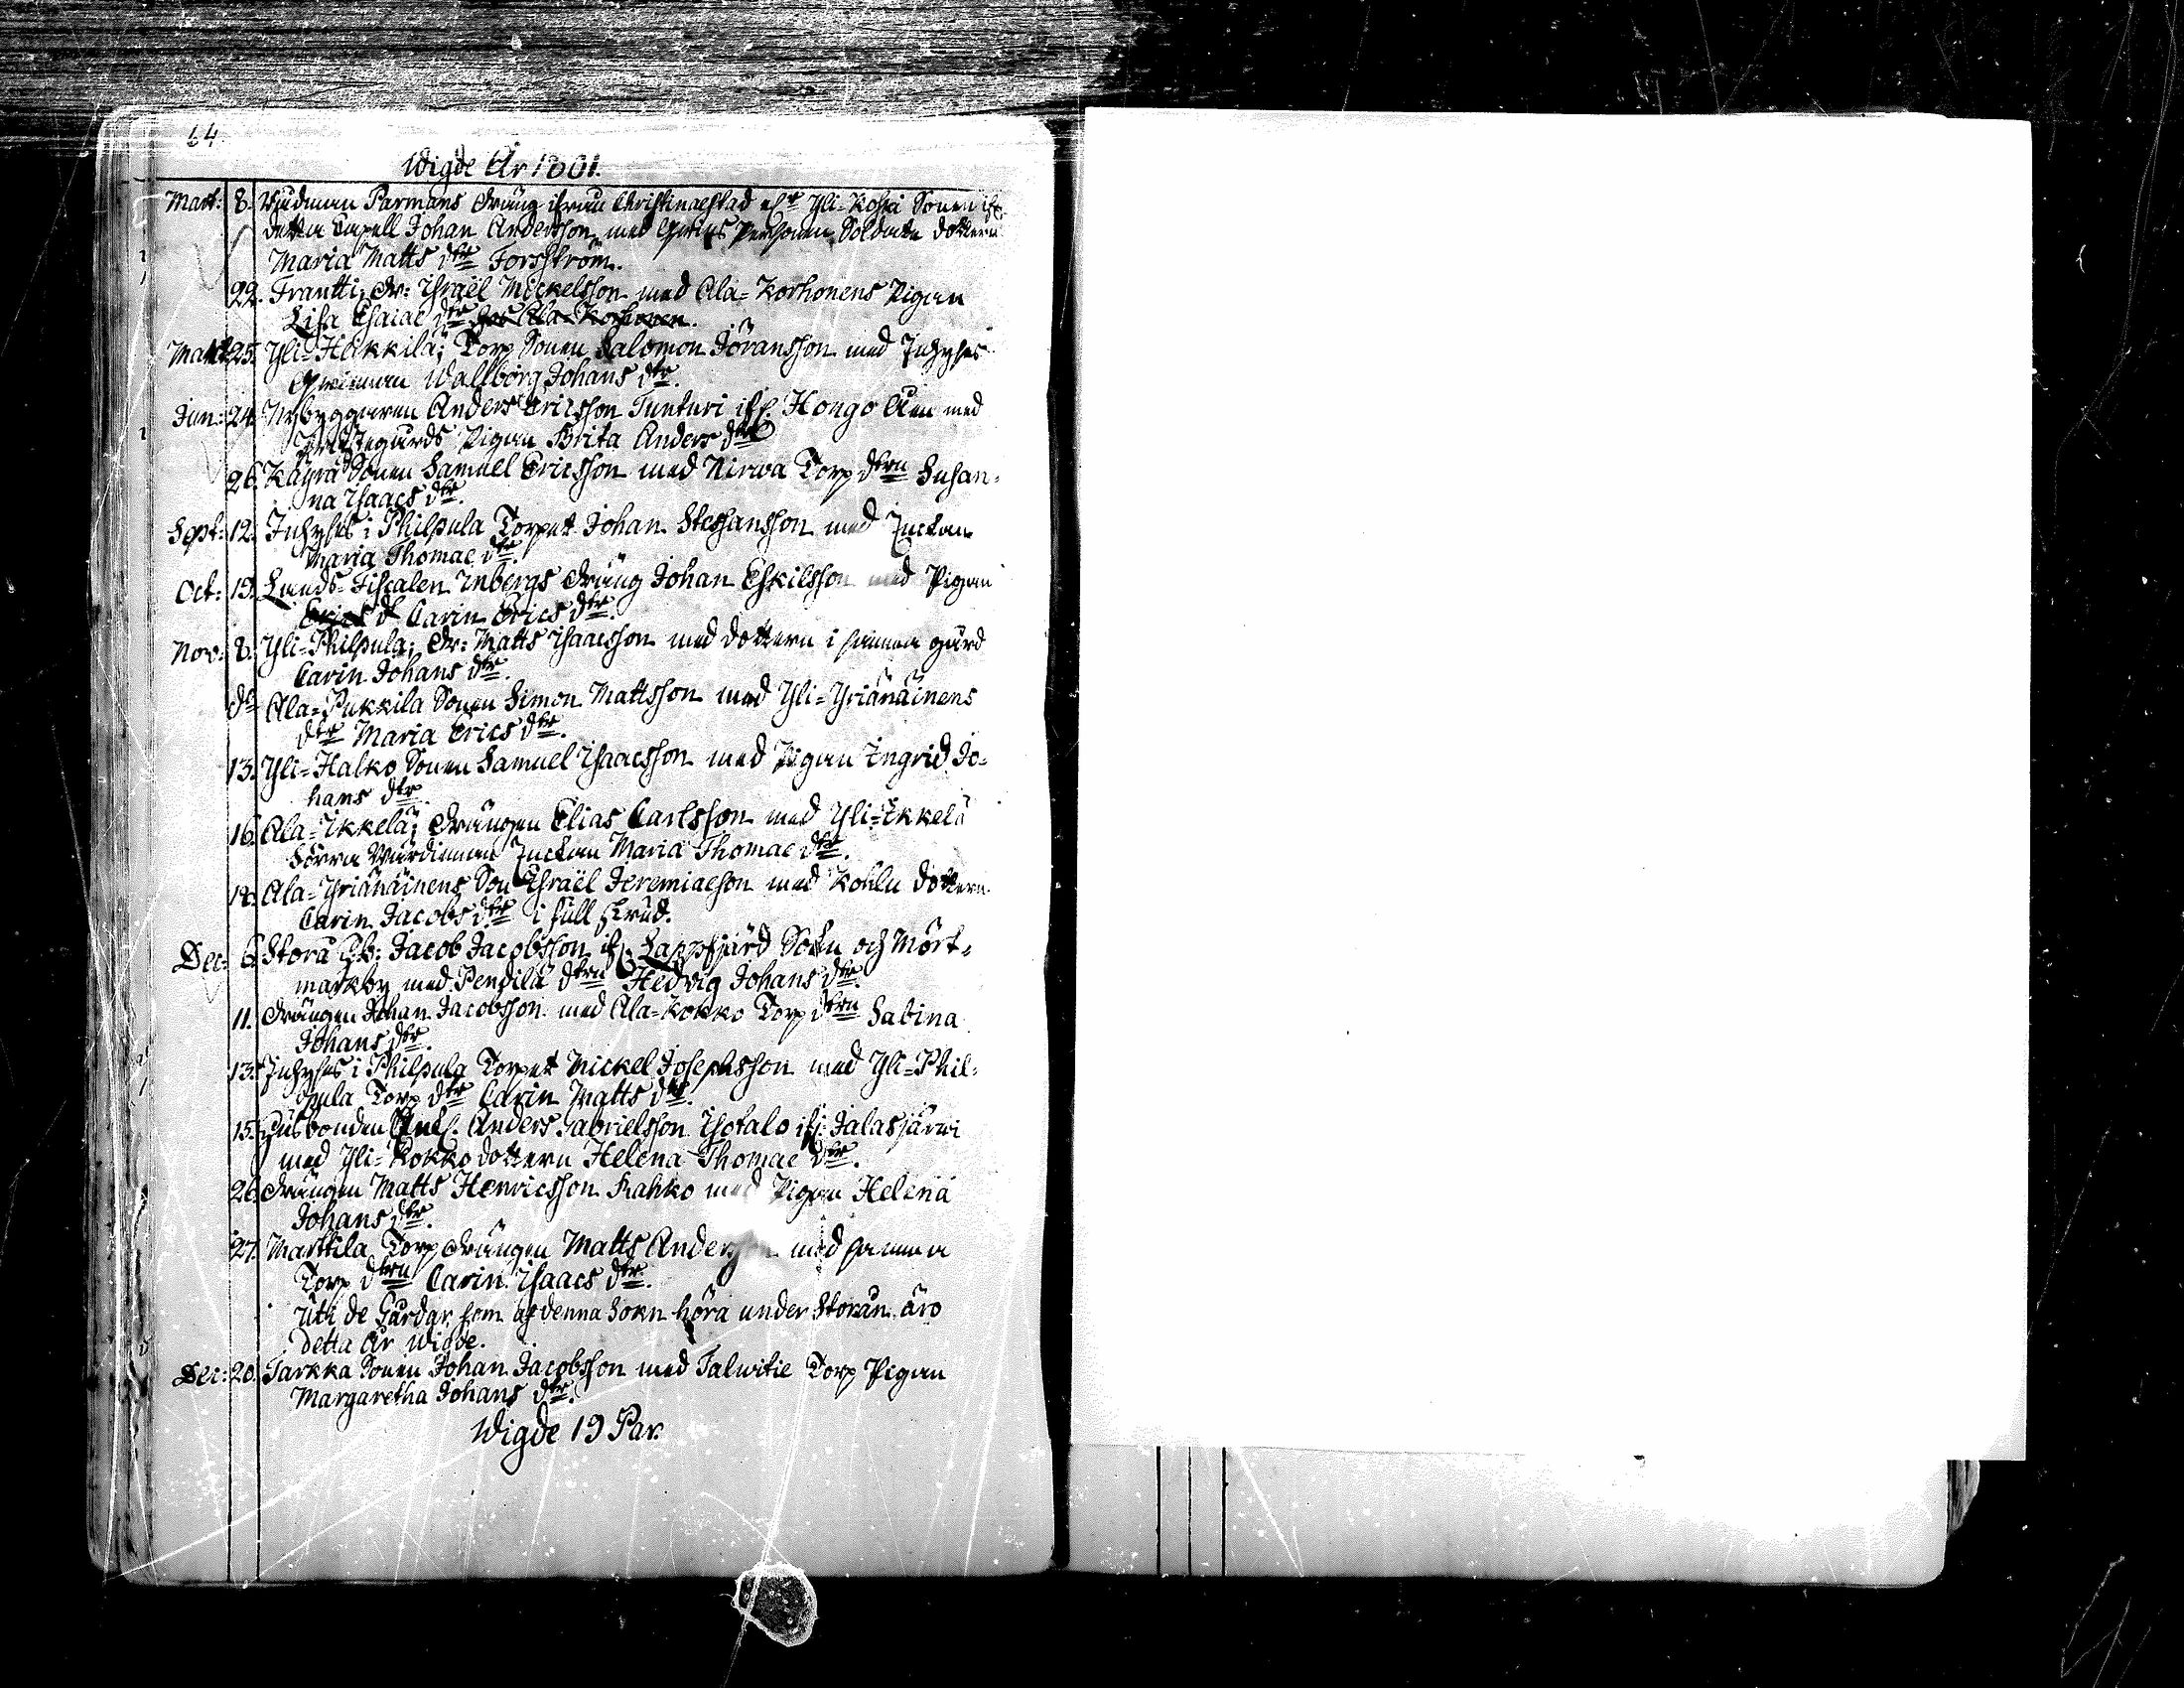 64
Wigde År 1801.
Mart: 8. Rådman Parmans dräng ifrån Christinaestad Yli-Koski Sonen
detta Capell Johan Andersson med Soldate dottern
Maria Matts dtr Forsström.
22. Frantti; dr: Israël Mickelsson med Ala-Korhonens Pigan
Lisa Esaiae dtr
25. Yli-Häkkilä; Torp Sonen Salomon Jöransson med Inhyses
Qwinnan Wallborg Johans dtr.
Jun: 24. Nybyggaren Anders Ericsson Tunturi if. Hongo Åen med
Pigan Brita Anders dtr
26. Käyrä Sonen Samuel Ericsson med Nirwa Torp dtrn Susan-
na Isaacs dtr.
Sept: 12. Inhyses i Philpula Torpet Johan Stephansson med Enckan
Maria Thomae dtr.
Oct: Lands-Fiscalen Inbergs dräng Johan Eskilsson med Pigan
Carin Erics dtr.
Nov: 8. Yli-Philpula; dr: Matts Isaacsson med dottern i samma gård
Carin Johans dtr.
do Ala-Pukkila Sonen Simon Mattsson med Yli-Yriänäinens
dtr Maria Erics dtr.
13. Yli-Halko Sonen Samuel Isaacsson med Pigan Ingrid Jo-
hans dtr.
16. Ala-Ikkelä; drängen Elias Carlsson med Yli-Ikkelä
förra Wärdinnan Enckan Maria Thomae dtr.
Ala-Yriänäinens Son Israël Jeremiaeson med Kohlu dottern
Carin Jacobs dtr i full skrud.
Dec: 6. Storå Jacob Jacobsson if. Lappfjärd Sokn och Mört-
markby med Pendilä dtrn Hedvig Johans dtr.
11. drängen Johan Jacobsson med Ala-Kokko Torp dtrn Sabina
Johans dtr.
13. Inhyses i Philpula Torpet Mickel Josephsson med Yli-Phil-
pula Torp dtr Carin Matts dtr.
15. Husbonden Anders Gabrielsson Isotalo if. Jalasjärwi
med Yli-Kokko dottern Helena Thomae dtr.
26. drängen Matts Henricsson Rahko med Pigan Helena
Johans dtr.
27. Marttila Torp drängen Matts Andersson med samma
Torp dtrn Carin Isaacs dtr.
Uti de Gårdar som af denna Sokn höra under Storån äro
detta År wigde.
Dec: 20. Tarkka Sonen Johan Jacobsson med Talwitie Torp Pigan
Margaretha Johans dtr.
Wigde 19 Par.